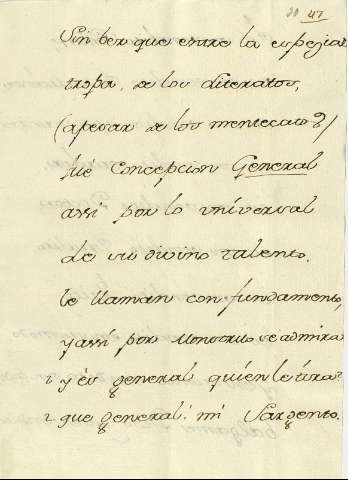 20 47
Sin ber que entre la espezial
tropa, de los Literatos,
(apesar de los mentecatos)
fue Concepcion General
assi por lo vniversal
de su divino talento.
le llaman con fundamento,
y assi por Monstruo se admira
i y és general quien le tira
i que general! mi Sargento.